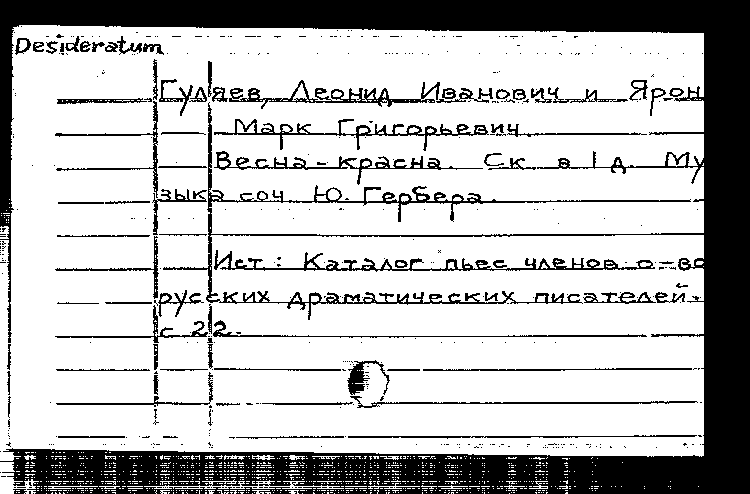 Desideratum
Гуляев, Леонид Иванович и Ярон
Марк Григорьевич.
Весна-красна. Ск. в 1 д. Му
зыка соч. Ю. Гербера.
Ист.: Каталог пьес членов о-во
русских драматических писателей.
с 22.